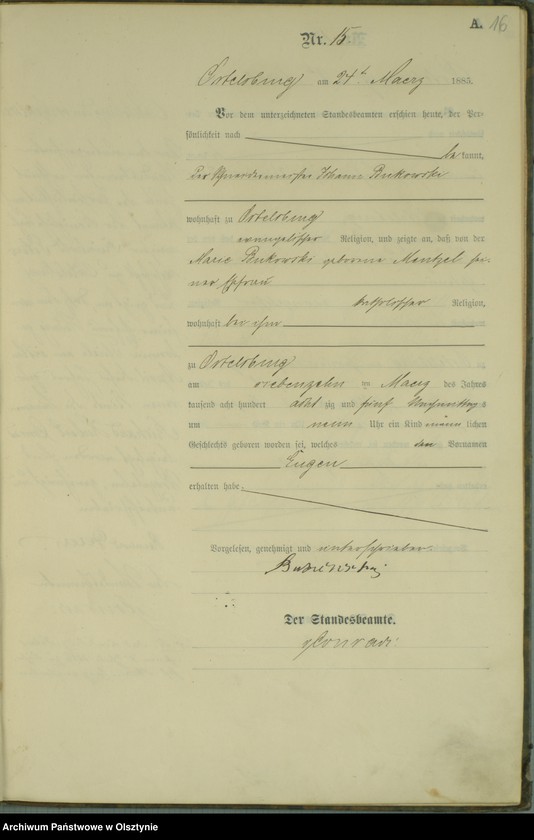 A. 16
Nr. 15
Ortelsburg am 24t Maerz 1885.
Vor dem unterzeichneten Standesbeamten erschien heute, der Per-
sönlichkeit nach
be kannt,
der Johann
wohnhaft zu Ortelsburg
evangelischer Religion, und zeigte an, daß von der
Marie geborene Mentzel sei-
ner Ehefrau
katholischer Religion,
wohnhaft bei ihm
zu Ortelsburg
am siebenzehn ten Maerz des Jahres
tausend acht hundert acht zig und fünf Nachmittags
um neun Uhr ein Kind männ lichen
Geschlechts geboren worden sei, welches den Vornamen
Eugen
erhalten habe.
Vorgelesen, genehmigt und unterschrieben.
Der Standesbeamte.
Conradi
Archiwum Państwowe w Olsztynie